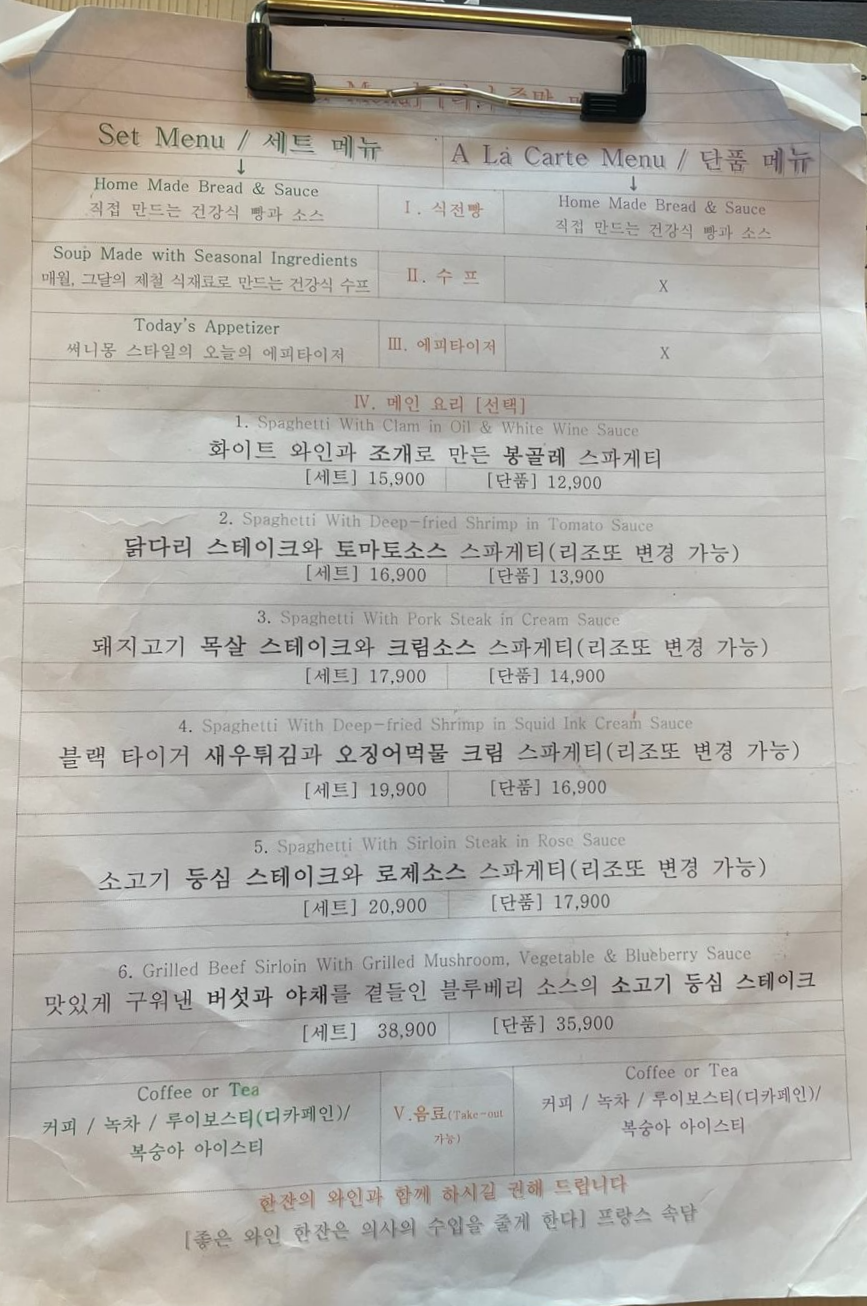 Set Menu / 세트 메뉴
A La Carte Menu / 단품 메뉴
↓
↓
Home Made Bread & Sauce
직접 만드는 건강식 빵과 소스
Ⅰ. 식전빵
Home Made Bread & Sauce
직접 만드는 건강식 빵과 소스
Soup Made with Seasonal Ingredients
매월, 그달의 제철 식재료로 만드는 건강식 수프
Ⅱ. 수 프
X
Today's Appetizer
써니몽 스타일의 오늘의 에피타이저
Ⅲ. 에피타이저
X
Ⅳ. 메인 요리 [선택]
1. Spaghetti With Clam in Oil & White Wine Sauce
화이트 와인과 조개로 만든 봉골레 스파게티
[세트] 15,900 [단품] 12,900
2. Spaghetti With Deep-fried Shrimp in Tomato Sauce
닭다리 스테이크와 토마토소스 스파게티(리조또 변경 가능)
[세트] 16,900 [단품] 13,900
3. Spaghetti With Pork Steak in Cream Sauce
돼지고기 목살 스테이크와 크림소스 스파게티(리조또 변경 가능)
[세트] 17,900 [단품] 14,900
4. Spaghetti With Deep-fried Shrimp in Squid Ink Cream Sauce
블랙 타이거 새우튀김과 오징어먹물 크림 스파게티(리조또 변경 가능)
[세트] 19,900 [단품] 16,900
5. Spaghetti With Sirloin Steak in Rose Sauce
소고기 등심 스테이크와 로제소스 스파게티(리조또 변경 가능)
[세트] 20,900 [단품] 17,900
6. Grilled Beef Sirloin With Grilled Mushroom, Vegetable & Blueberry Sauce
맛있게 구워낸 버섯과 야채를 곁들인 블루베리 소스의 소고기 등심 스테이크
[세트] 38,900 [단품] 35,900
Coffee or Tea
커피 / 녹차 / 루이보스티(디카페인)/
복숭아 아이스티
Ⅴ.음료(Take-out
가능)
Coffee or Tea
커피 / 녹차 / 루이보스티(디카페인)/
복숭아 아이스티
한잔의 와인과 함께 하시길 권해 드립니다
[좋은 와인 한잔은 의사의 수입을 줄게 한다] 프랑스 속담